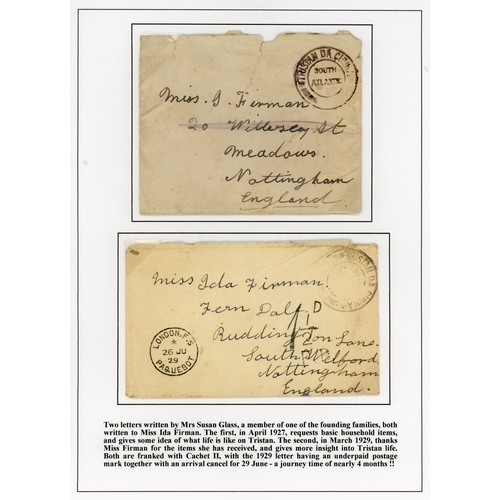 TRISTAN DA CUNHA
SOUTH
ATLANTIC
Miss. I. Firman
20 Willersey St
Meadows.
Nottingham
England
TRISTAN DA CUNHA
Miss Ida Firman.
Fern Dale
D
Ruddington Lane.
South Wilford
Nottingham
England.
LONDON, F.S
*
26 JU
29
PAQUEBOT
Two letters written by Mrs Susan Glass, a member of one of the founding families, both
written to Miss Ida Firman. The first, in April 1927, requests basic household items,
and gives some idea of what life is like on Tristan. The second, in March 1929, thanks
Miss Firman for the items she has received, and gives more insight into Tristan life.
Both are franked with Cachet II, with the 1929 letter having an underpaid postage
mark together with an arrival cancel for 29 June - a journey time of nearly 4 months !!